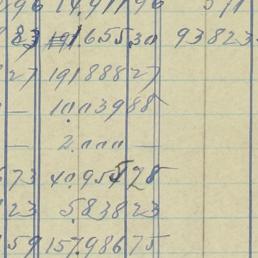 96 14.911 96 511
83 191.655.30 93823
27 19188827
— 10.03988
— 2.000 —
673 40.95528
23 5.83823
59 157.98675